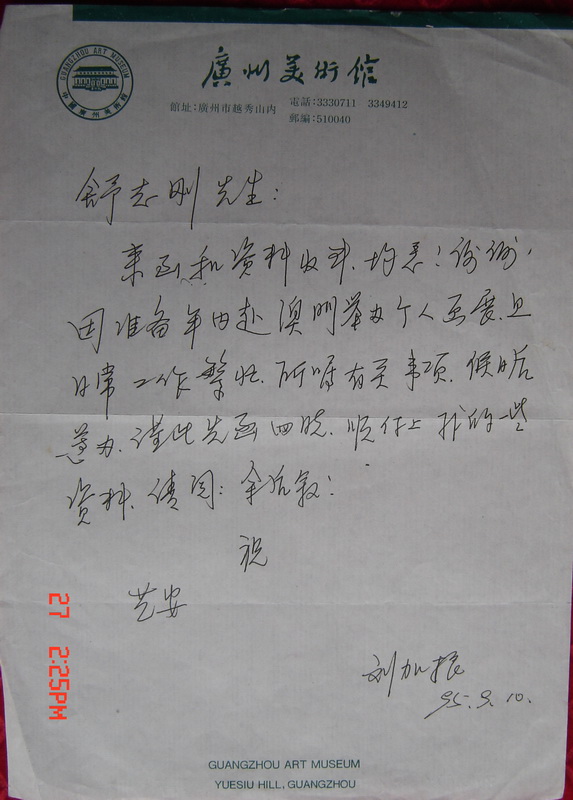 GUANGZHOU ART MUSEUM
中國廣州美術館
廣州美術館
館址:廣州市越秀山内 電話:3330711 3349412
郵編:510040
舒志刚先生:
来函和资料收到,均悉!谢谢,
因准备年内赴澳门举办个人画展,且
日常工作繁忙,所嘱有关事项,候日后
遵办,谨此先函回晓,顺付上我的一些
资料,请阅;余后叙!
祝
艺安
刘加振
95.9.10.
27 2:25PM
GUANGZHOU ART MUSEUM
YUESIU HILL, GUANGZHOU